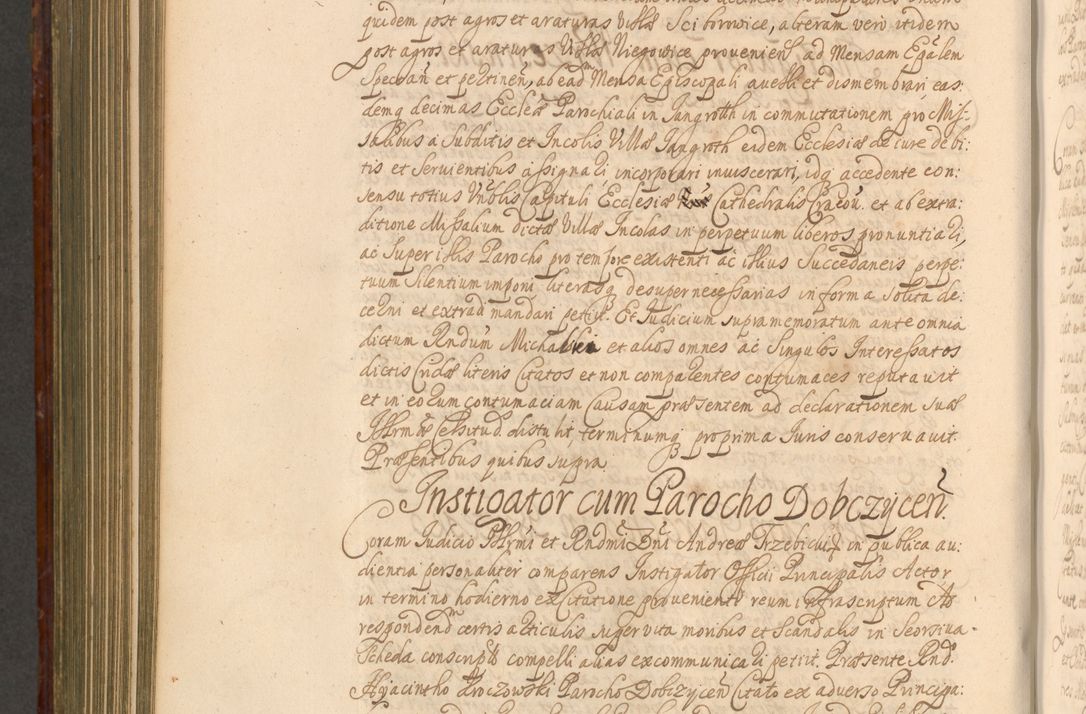 quidem post agros et araturas Villæ Sci borwice, alteram vero itidem
post agros et araturas Villæ Niegowice provenien ad Mensam Epalem
Spectan et pertinen, ab eadem Mensa Episcopali avelli et dismembrari, eas:
demq decimas Ecclesiæ Parochiali in Jangroth in commutationem pro Mis:
salibus a Subditis et Incolis Villæ Jangroth eidem Ecclesiæ de iure debi:
tis et servientibus assignari incorporari inviscerari, idq accedente con:
sensu totius Vnblis Capituli Ecclesiæ Cathedralis Cracou. et ab extra:
ditione Missalium dictæ Villæ Incolas in perpetuum liberos pronuntiari,
ac super illis Parocho pro tempore existenti ac illius Succedaneis perpe:
tuum silentium imponi literasq desuper necessarias in forma solita de:
cerni et extradi mandari petiit. Et Judicium supra memoratum ante omnia
dictum Rndum Michaelem et alios omnes ac singulos Interessatos
dictis Cridæ literis Citatos et non comparentes contumaces reputavit
et in eorum contumaciam Causam præsentem ad declarationem suæ
Illrmæ Celsitud. distulit terminumq pro prima Juris conservavit.
Præsentibus quibus supra
Instigator cum Parocho Dobczycen.
Coram Judicio Illrmi et Rndmi Dni Andreæ Trzebicki in publica au:
dientia personaliter comparens Instigator Officii Principalis Actor
in termino hodierno ex Citatione provenienti reum infrascriptum Ad
respondend certis articulis super vita moribus et scandalis in seorsiva
scheda conscriptis compelli alias excommunicari petiit. Præsente Rnd.
Hyacintho Kroczowski Parocho Dobczycen Citato ex adverso Principa: